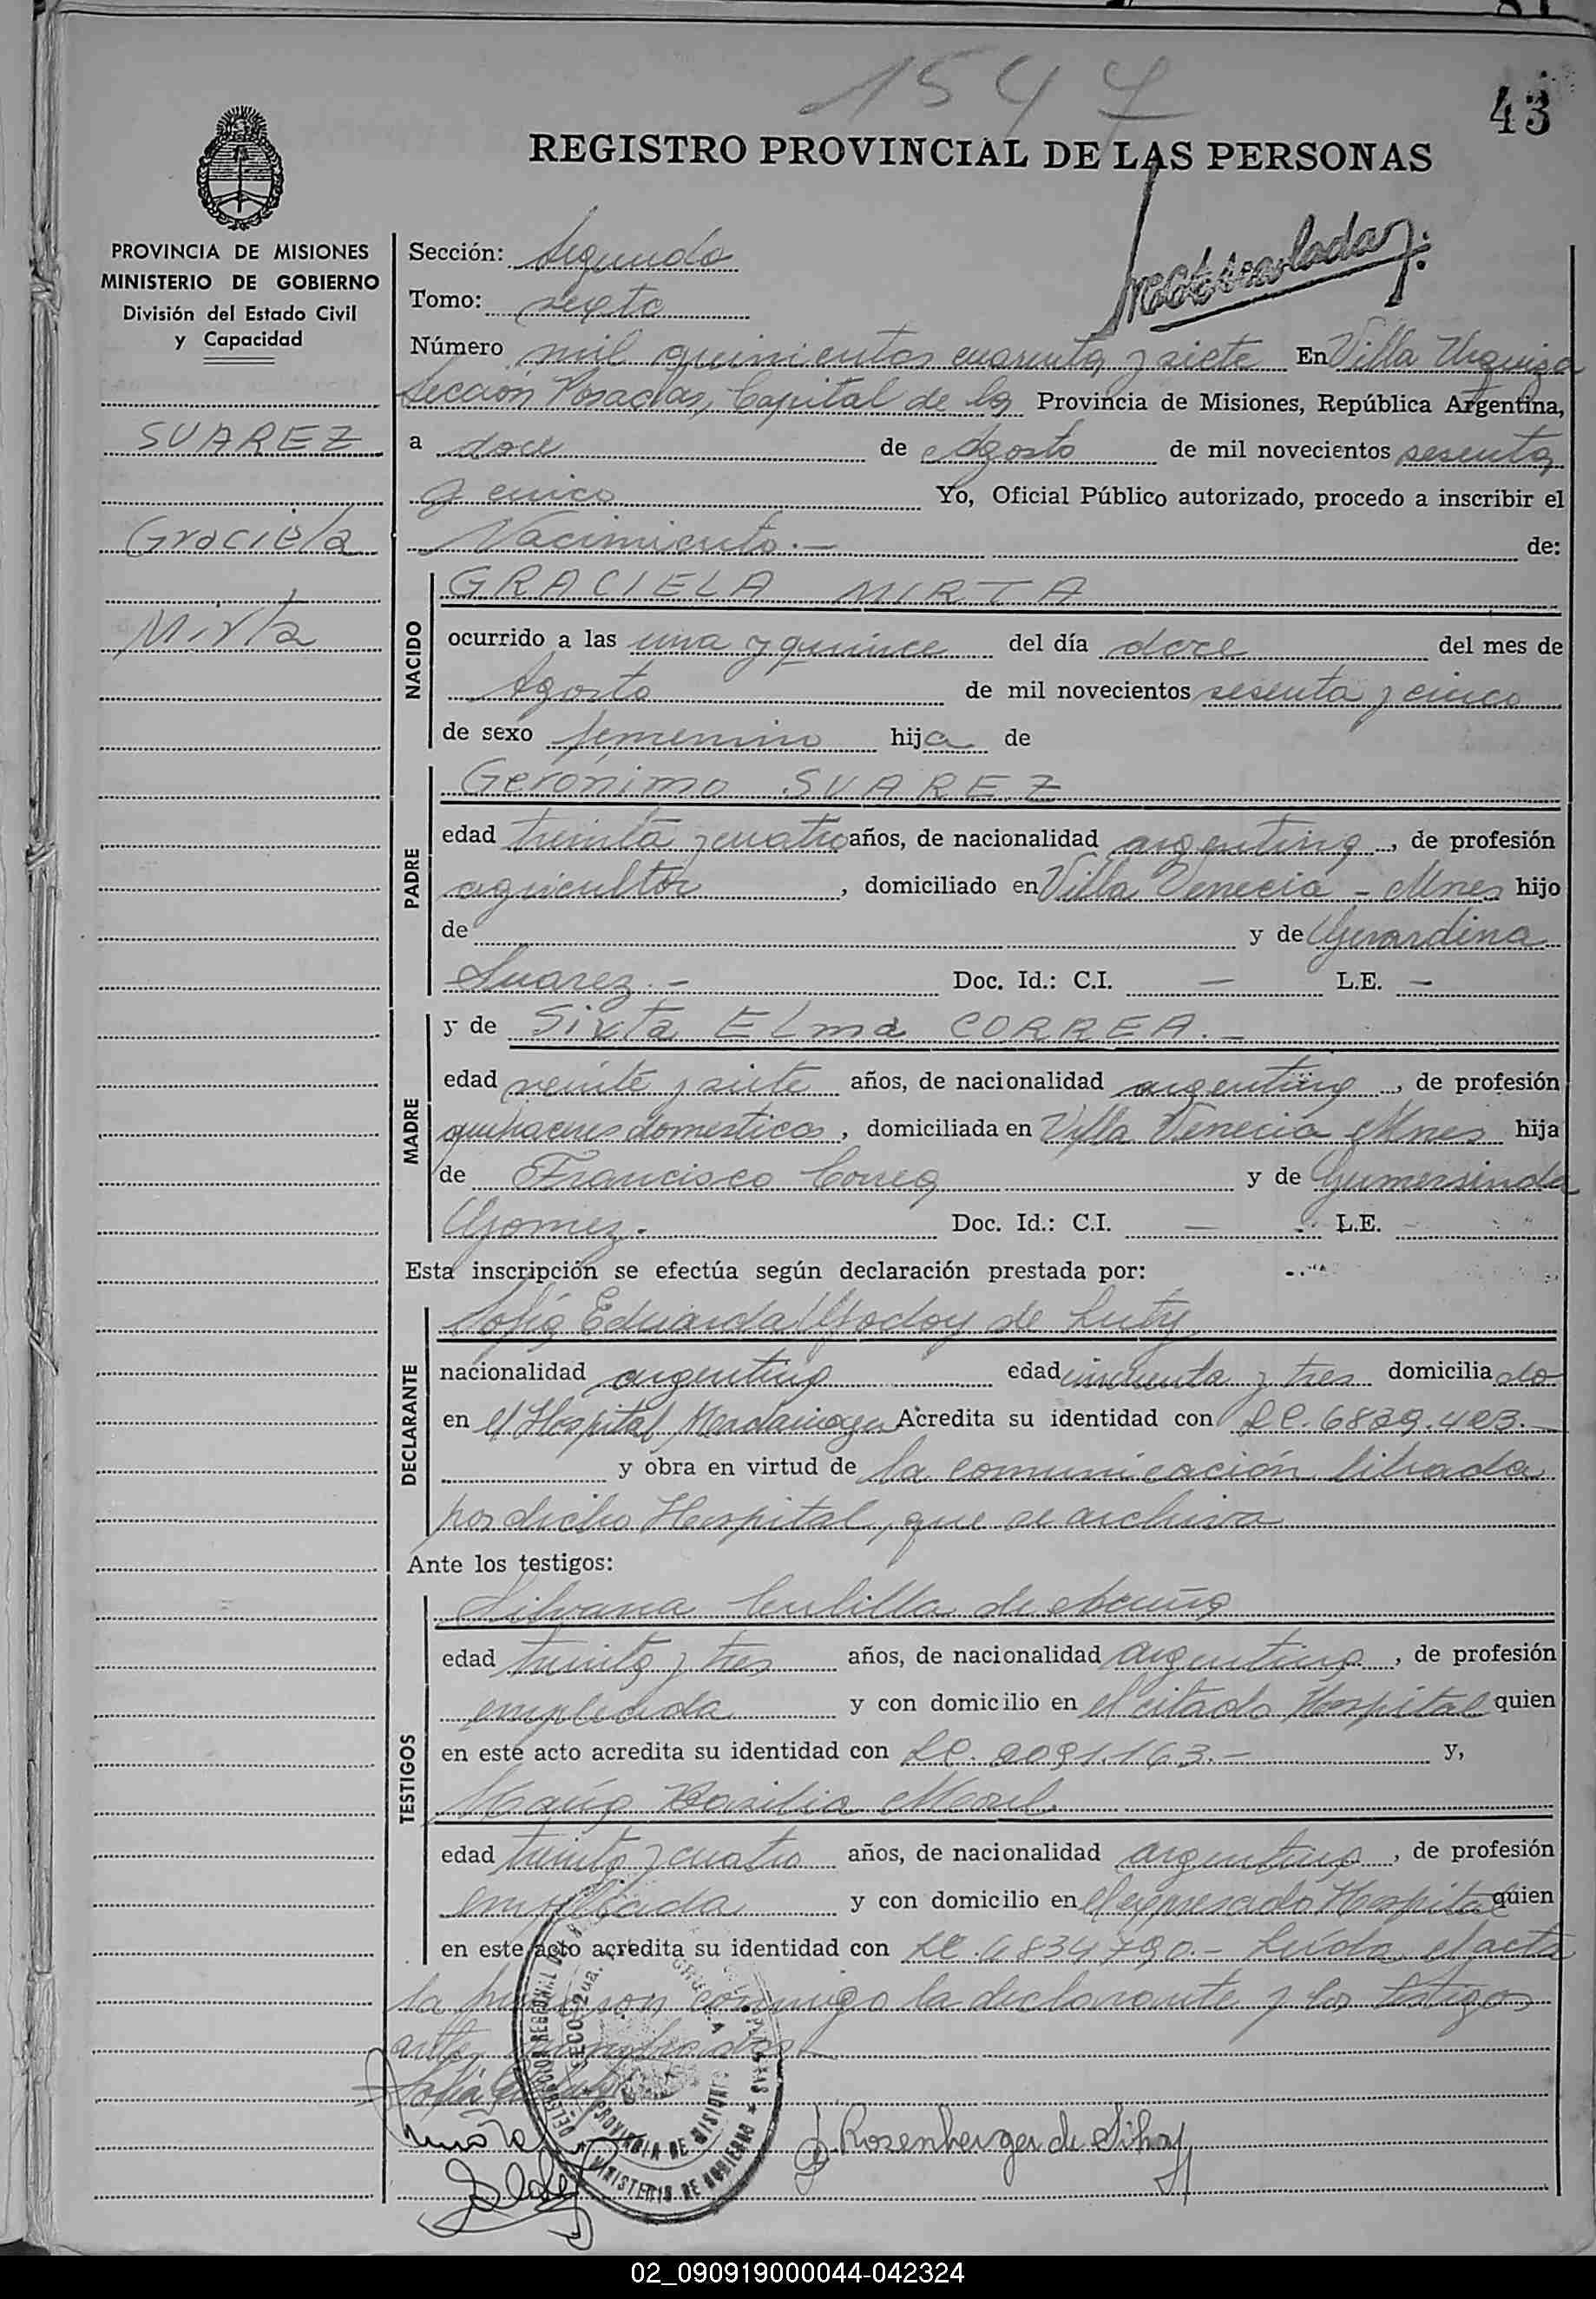 1547
43
REGISTRO PROVINCIAL DE LAS PERSONAS
PROVINCIA DE MISIONES
MINISTERIO DE GOBIERNO
División del Estado Civil
y Capacidad
SUAREZ
Graciela
Mirta
Sección: Segunda
Tomo: sexto
Número mil quinientos cuarenta y siete En Villa Urquiza
Sección Posadas, Capital de la Provincia de Misiones, República Argentina,
a doce de Agosto de mil novecientos sesenta
y cinco Yo, Oficial Público autorizado, procedo a inscribir el
Nacimiento.— de:
NACIDO
GRACIELA MIRTA
ocurrido a las una y quince del día doce del mes de
Agosto de mil novecientos sesenta y cinco
de sexo femenino hija de
PADRE
Gerónimo SUAREZ
edad treinta y cuatro años, de nacionalidad argentina, de profesión
agricultor, domiciliado en Villa Venecia - Mnes hijo
de y de Gerardina
Suarez.- Doc. Id.: C.I. — L.E. —
MADRE
y de Sixta ELma CORREA.-
edad veinte y siete años, de nacionalidad argentina, de profesión
quehaceres domesticos, domiciliada en Villa Venecia Mnes hija
de Francisco Correa y de Gumersinda
Gomez. Doc. Id.: C.I. — L.E.
Esta inscripción se efectúa según declaración prestada por:
DECLARANTE
Sofia Eduarda Godoy de
nacionalidad argentina edad cincuenta y tres domiciliado
en el Hospital Madariaga Acredita su identidad con LC. 6829.423.—
y obra en virtud de la comunicación librada
por dicho Hospital, que se archiva
Ante los testigos:
TESTIGOS
Silvana de Acuña
edad treinta y tres años, de nacionalidad argentina, de profesión
empleada y con domicilio en el citado Hospital quien
en este acto acredita su identidad con LC. 2091.163.— y,
María Basilia
edad treinta y cuatro años, de nacionalidad argentina, de profesión
empleada y con domicilio en el expresado Hospital quien
en este acto acredita su identidad con LC. 6834790.- Leída el acta
la conmigo la declarante y los testigos
DELEGACION REGIONAL
SECC. 2da.
PROVINCIA DE MISIONES
MINISTERIO DE GOBIERNO
Rosenberger de Silva
02_090919000044-042324